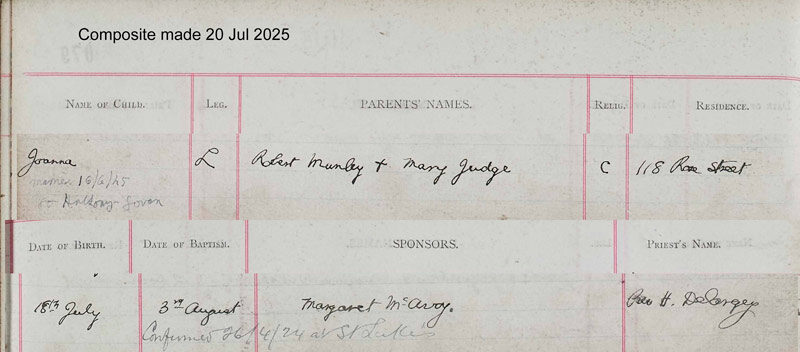 Composite made 20 Jul 2025
NAME OF CHILD. LEG. PARENTS' NAMES. RELIG. RESIDENCE.
Joanna L Robert Munley + Mary Judge C 118 Rose Street
married 16/6/45
to Anthony Govan
DATE OF BIRTH. DATE OF BAPTISM. SPONSORS. PRIEST'S NAME.
18th July 3rd August Margaret McAvoy. Rev H. Delargey
Confirmed 26/4/24 at St Luke's